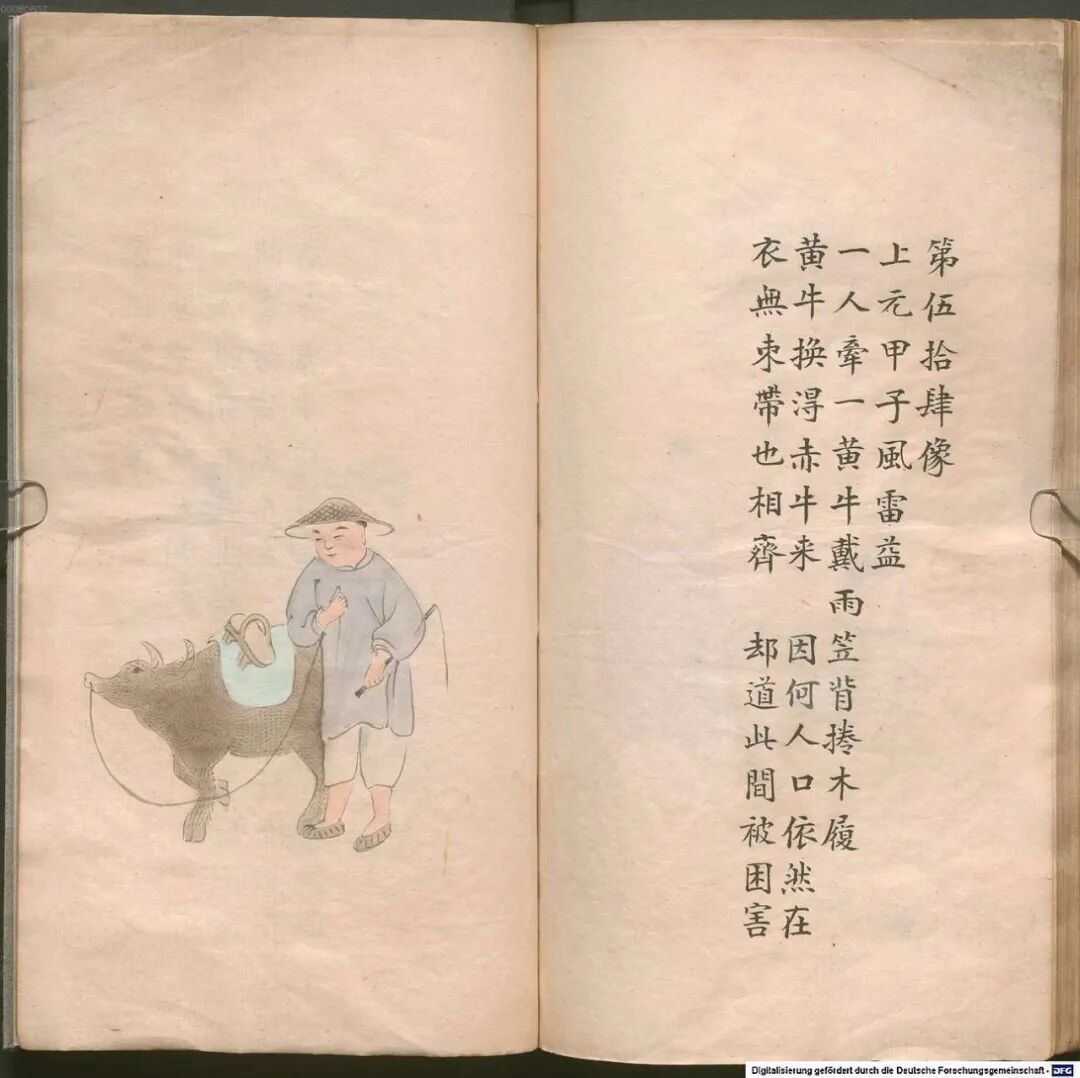 第伍拾肆像
上元甲子風雷益
一人牽一黄牛戴雨笠背捲木履
黄牛换淂赤牛来 因何人口依然在
衣無束帶也相齊 却道此間被困害
00080607
Digitalisierung gefördert durch die Deutsche Forschungsgemeinschaft - DFG